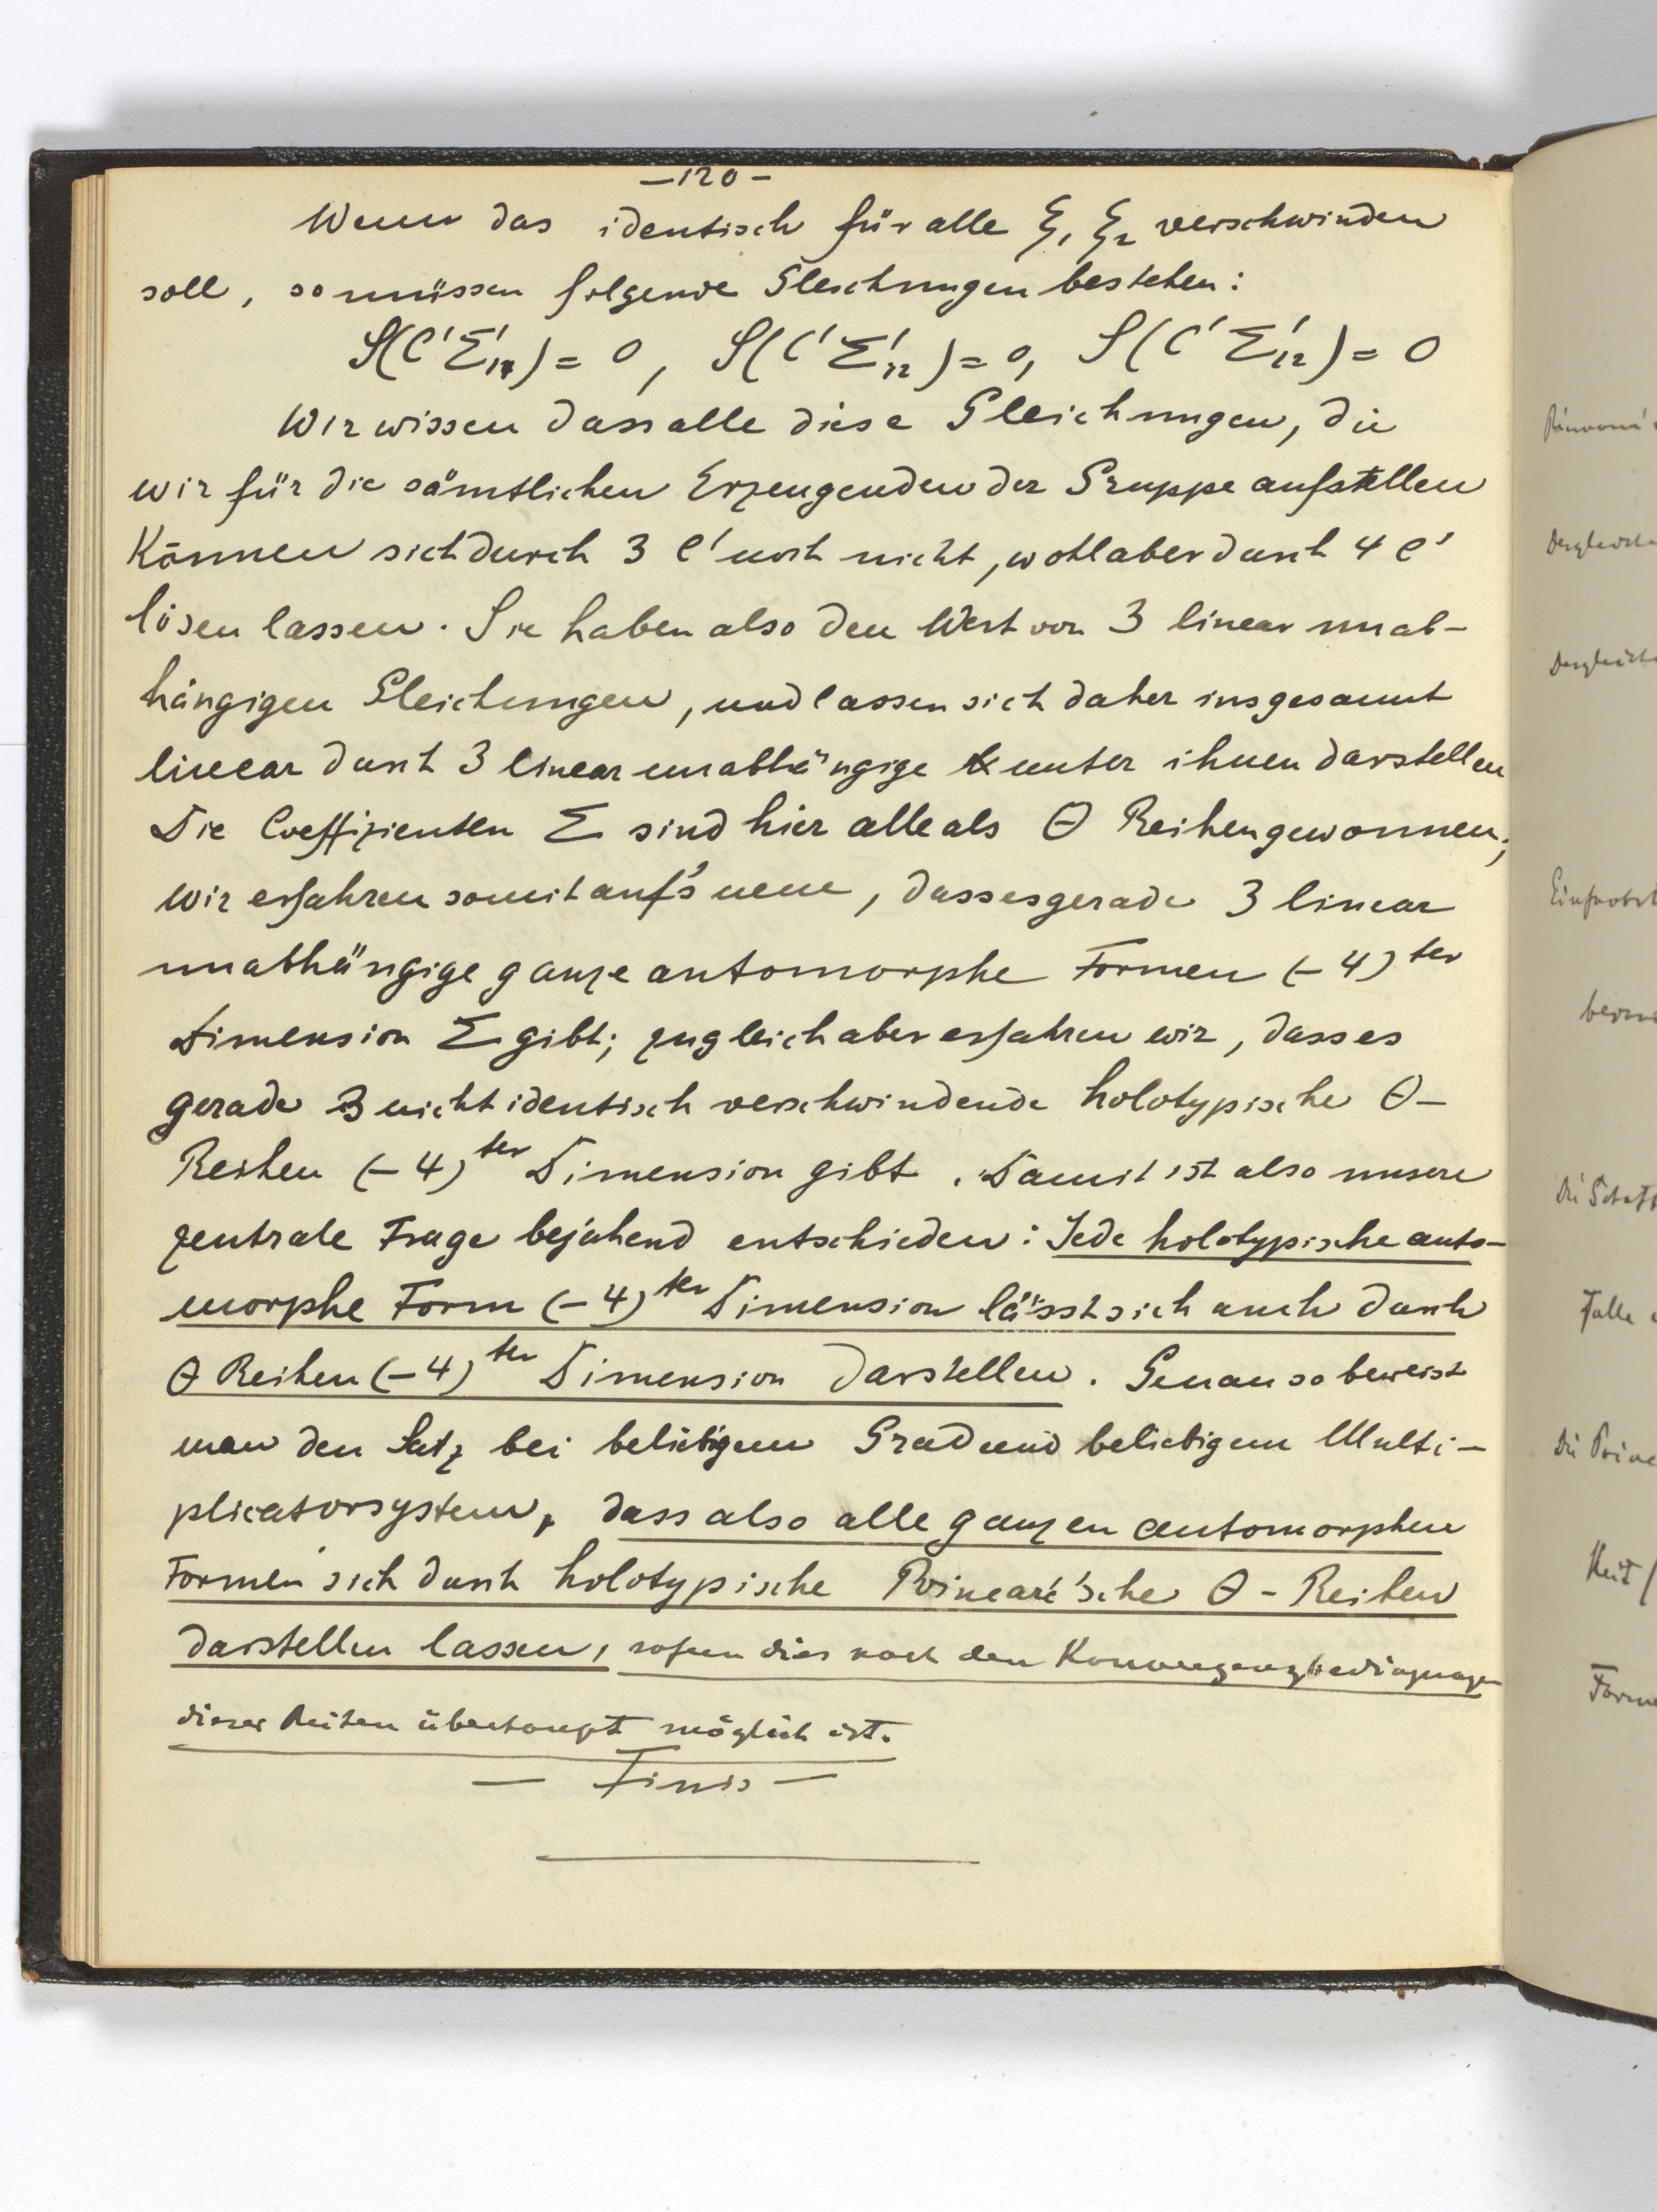 –120–
Wenn das identisch für alle ξ₁ ξ₂ verschwinden
soll, so müssen folgende Gleichungen bestehen:
S(C'Σ'₁₁) = 0, S(C'Σ'₁₂) = 0, S(C'Σ'₁₂) = 0
Wir wissen dass alle diese Gleichungen, die
wir für die sämtlichen Erzeugenden der Gruppe aufstellen
Können sich durch 3 C' noch nicht, wohl aber durch 4 C'
lösen lassen. Sie haben also den Wert von 3 linear unab-
hängigen Gleichungen, und lassen sich daher insgesamt
linear durch 3 linear unabhängige unter ihnen darstellen
Die Coeffizienten Σ sind hier alle als Θ Reihen gewonnen;
wir erfahren somit auf's neue, dass es gerade 3 linear
unabhängige ganze automorphe Formen (–4)ter
Dimension Σ gibt; zugleich aber erfahren wir, dass es
gerade 3 nicht identisch verschwindende holotypische Θ–
Reihen (–4)ter Dimension gibt. Damit ist also unsere
zentrale Frage bejahend entschieden: Jede holotypische auto-
morphe Form (–4)ter Dimension lässt sich auch durch
Θ Reihen (–4)ter Dimension darstellen. Genau so beweist
man den Satz bei beliebigem Grad und beliebigem Multi-
plicatorsystem, dass also alle ganzen automorphen
Formen sich durch holotypische Poincaré'sche Θ – Reihen
darstellen lassen, sofern dies nach den Konvergenzbedingungen
dieser Reihen überhaupt möglich ist.
— Finis —
Falle